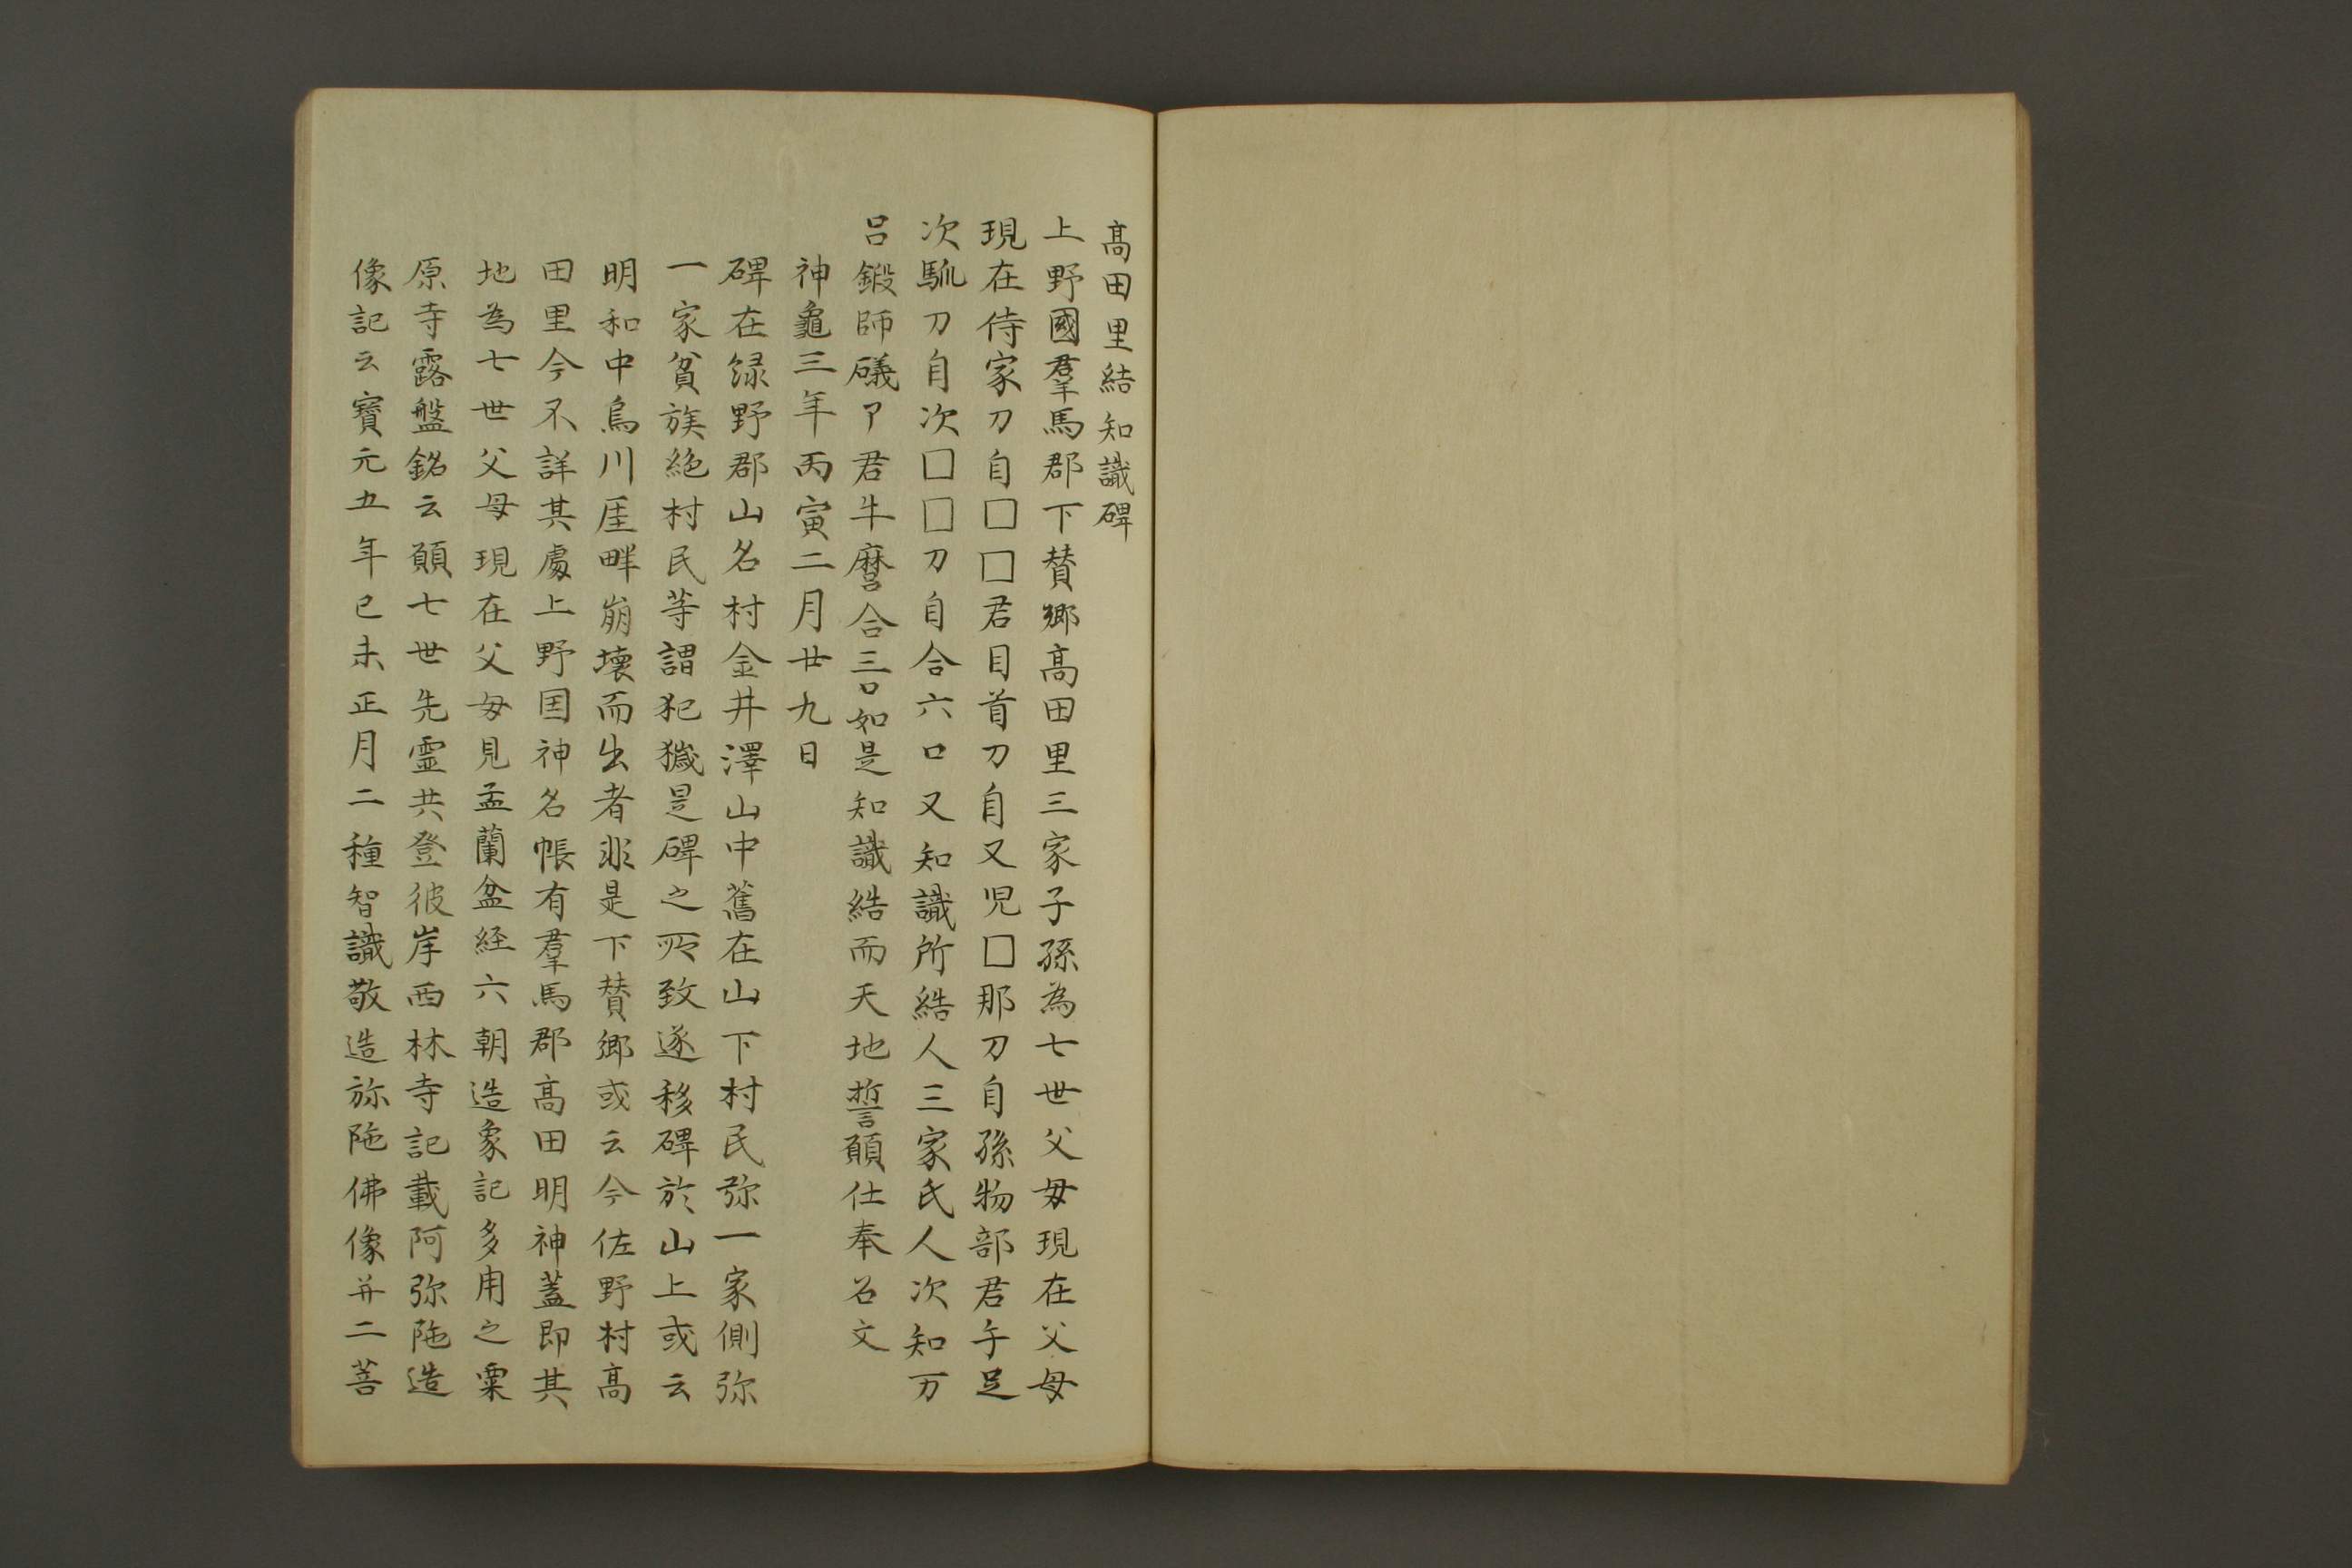 髙田里結知識碑
上野國羣馬郡下賛郷髙田里三家子孫為七世父毋現在父母
現在侍家刀自□□君目首刀自又児□那刀自孫物部君午足
次馴刀自次□□刀自合六口又知識所結人三家氏人次知万
呂鍛師礒卩君牛麿合三口如是知識結而天地誓願仕奉石文
神龜三年丙寅二月廿九日
碑在緑野郡山名村金井澤山中舊在山下村民弥一家側弥
一家貧族絶村民等謂犯獩是碑之所致遂移碑於山上或云
明和中烏川厓畔崩壊而出者非是下賛郷或云今佐野村髙
田里今不詳其處上野国神名帳有羣馬郡髙田明神蓋即其
地為七世父母現在父毋見盂蘭盆経六朝造象記多用之粟
原寺露盤銘云願七世先霊共登彼岸西林寺記載阿弥陁造
像記云寶元五年己未正月二種智識敬造弥陁佛像并二菩